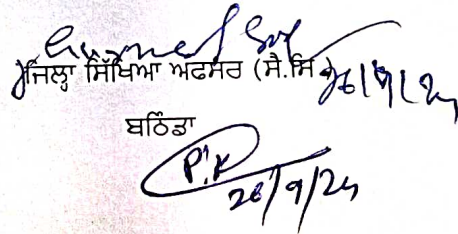 ਜਿਲ੍ਹਾ ਸਿੱਖਿਆ ਅਫਸਰ (ਸੈ.ਸਿ.) 26/9/24
ਬਠਿੰਡਾ
P.K
26/9/24